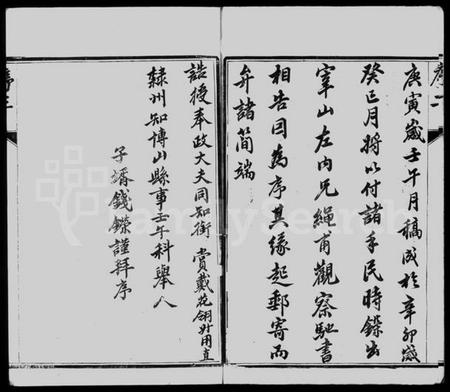 庚寅歲壬午月稿成於辛卯歲
癸巳月將以付諸手民時鑅出
宰山左內兄繩甫觀察馳書
相告因為序其緣起郵寄而
弁諸簡端
誥授奉政大夫同知銜 賞戴花翎升用直
隸州知博山縣事壬午科舉人
子壻錢鑅謹拜序
FamilySearch